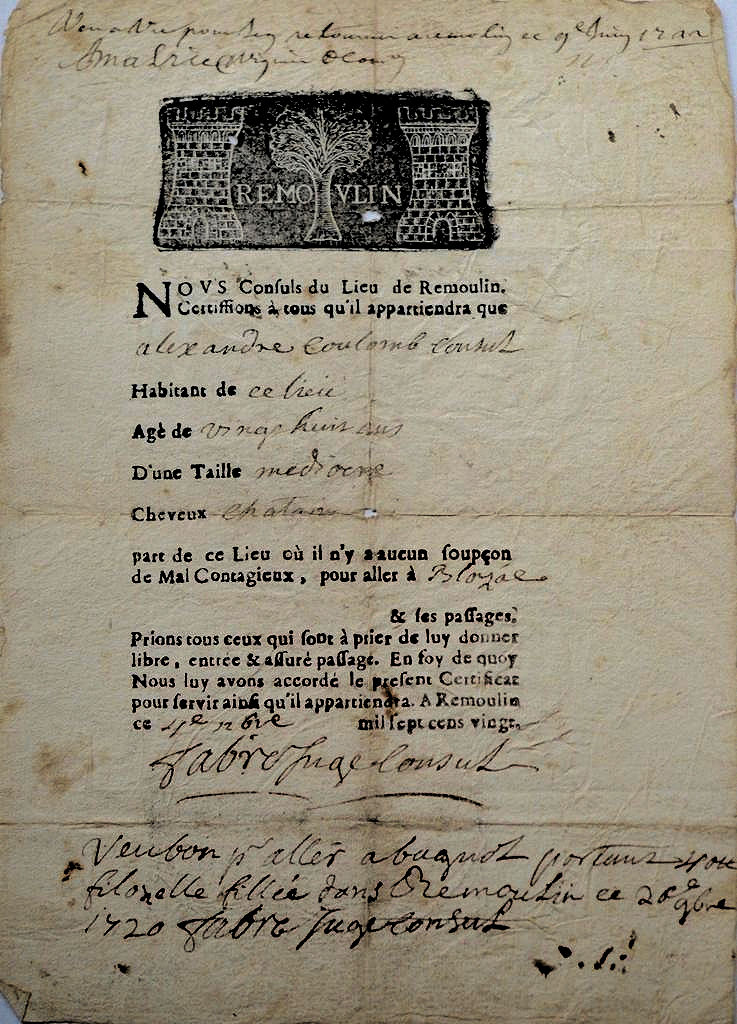 retourner a remoulin ce 9e
REMOVLIN
NOVS Conſuls du Lieu de Remoulin.
Certiffions à tous qu'il appartiendra que
alexandre coulomb consul
Habitant de ce lieu
Agè de vingt huit ans
D'une Taille mediocre
Cheveux chatain
part de ce Lieu où il n'y a aucun ſoupçon
de Mal Contagieux, pour aller à Blozac
& ſes paſſages.
Prions tous ceux qui ſont à prier de luy donner
libre, entrée & aſſuré paſſage. En foy de quoy
Nous luy avons accordé le preſent Certificat
pour ſervir ainſi qu'il appartiendra. A Remoulin
ce 4e nbre mil ſept cens vingt.
fabre Juge Consul
Veu bon pr aller a bagnol portant
filozelle fillée dans Remoulin ce 20e 9bre
1720 fabre Juge consul